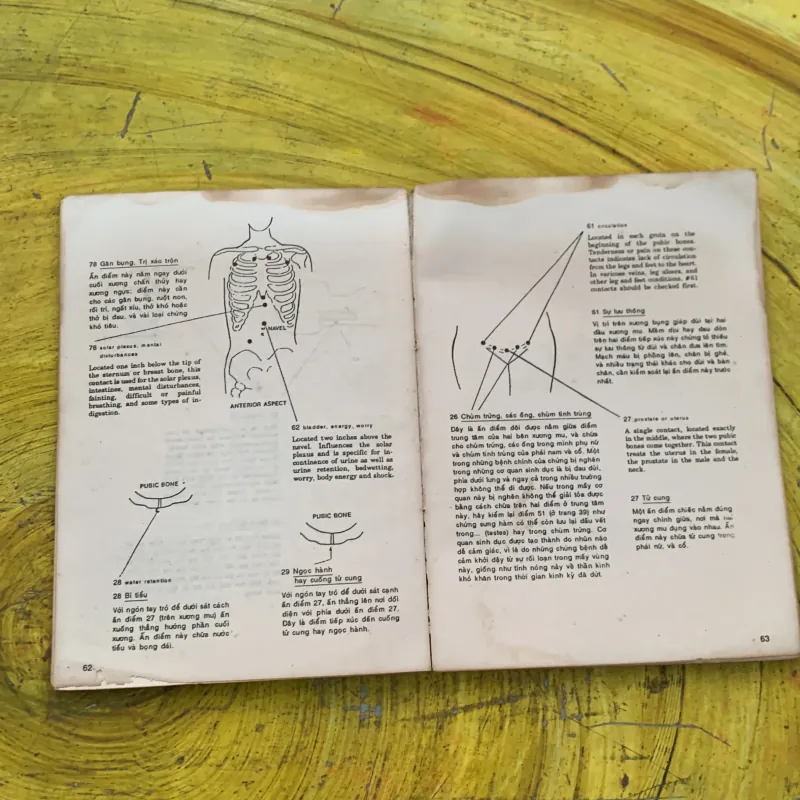 78 Gân bụng, Trị xáo trộn
Ấn điểm này nằm ngay dưới
cuối xương chấn thủy hay
xương ngực; điểm này cần
cho các gân bụng, ruột non,
rối trí, ngất xỉu, thở khó hoặc
thở bị đau, và vài loại chứng
khó tiêu.
78 solar plexus, mental
disturbances
Located one inch below the tip of
the sternum or breast bone, this
contact is used for the solar plexus,
intestines, mental disturbances,
fainting, difficult or painful
breathing, and some types of in-
digestion.
NAVEL
ANTERIOR ASPECT
62 bladder, energy, worry
Located two inches above the
navel. Influences the solar
plexus and is specific for in-
continence of urine as well as
urine retention, bedwetting,
worry, body energy and shock.
PUBIC BONE
28 water retention
28 Bí tiểu
Với ngón tay trỏ để dưới sát cách
ấn điểm 27 (trên xương mu) ấn
xuống thẳng hướng phần cuối
xương. Ấn điểm này chữa nước
tiểu và bọng đái.
PUBIC BONE
29 Ngọc hành
hay cuống tử cung
Với ngón tay trỏ để dưới sát cạnh
ấn điểm 27, ấn thẳng lên nơi đối
diện với phía dưới ấn điểm 27.
Đây là điểm tiếp xúc đến cuống
tử cung hay ngọc hành.
62
61 circulation
Located in each groin on the
beginning of the pubic bones.
Tenderness or pain on these con-
tacts indicates lack of circulation
from the legs and feet to the heart.
In varicose veins, leg ulcers, and
other leg and feet conditions, #61
contacts should be checked first.
61 Sự lưu thông
Vị trí trên xương bụng giáp đùi tại hai
đầu xương mu. Mềm dịu hay đau đớn
trên hai điểm tiếp xúc này chứng tỏ thiếu
sự lưu thông từ đùi và chân đưa lên tim.
Mạch máu bị phồng lên, chân bị ghẻ,
và nhiều trạng thái khác cho đùi và bàn
chân, cần kiểm soát lại ấn điểm này trước
nhất.
26 Chùm trứng, các ống, chùm tinh trùng
Đây là ấn điểm đôi được nằm giữa điểm
trung tâm của hai bên xương mu, và chữa
cho chùm trứng, các ống trong mình phụ nữ
và chùm tinh trùng của phái nam và cổ. Một
trong những bệnh chính của chứng bị nghẽn
trong những cơ quan sinh dục là bị đau đùi,
phía dưới lưng và ngay cả trong nhiều trường
hợp không thể đi được. Nếu trong mấy cơ
quan này bị nghẽn không thể giải tỏa được
bằng cách chữa trên hai điểm ở trung tâm
này, hãy kiểm lại điểm 51 (ở trang 39) như
chứng sưng hàm có thể còn lưu lại dấu vết
trong... (testes) hay trong chùm trứng. Cơ
quan sinh dục được tạo thành do nhu​n não
dễ cảm giác, vì là do những chứng bệnh dễ
cảm khởi dậy từ sự rối loạn trong mấy vùng
này, giống như tính nóng nảy và thần kinh
khó khăn trong thời gian kinh kỳ đã dứt.
27 prostate or uterus
A single contact, located exactly
in the middle, where the two pubic
bones come together. This contact
treats the uterus in the female,
the prostate in the male and the
neck.
27 Tử cung
Một ấn điểm chiếc nằm đúng
ngay chính giữa, nơi mà hai
xương mu đụng vào nhau. Ấn
điểm này chữa tử cung trong
phái nữ, và cổ.
63